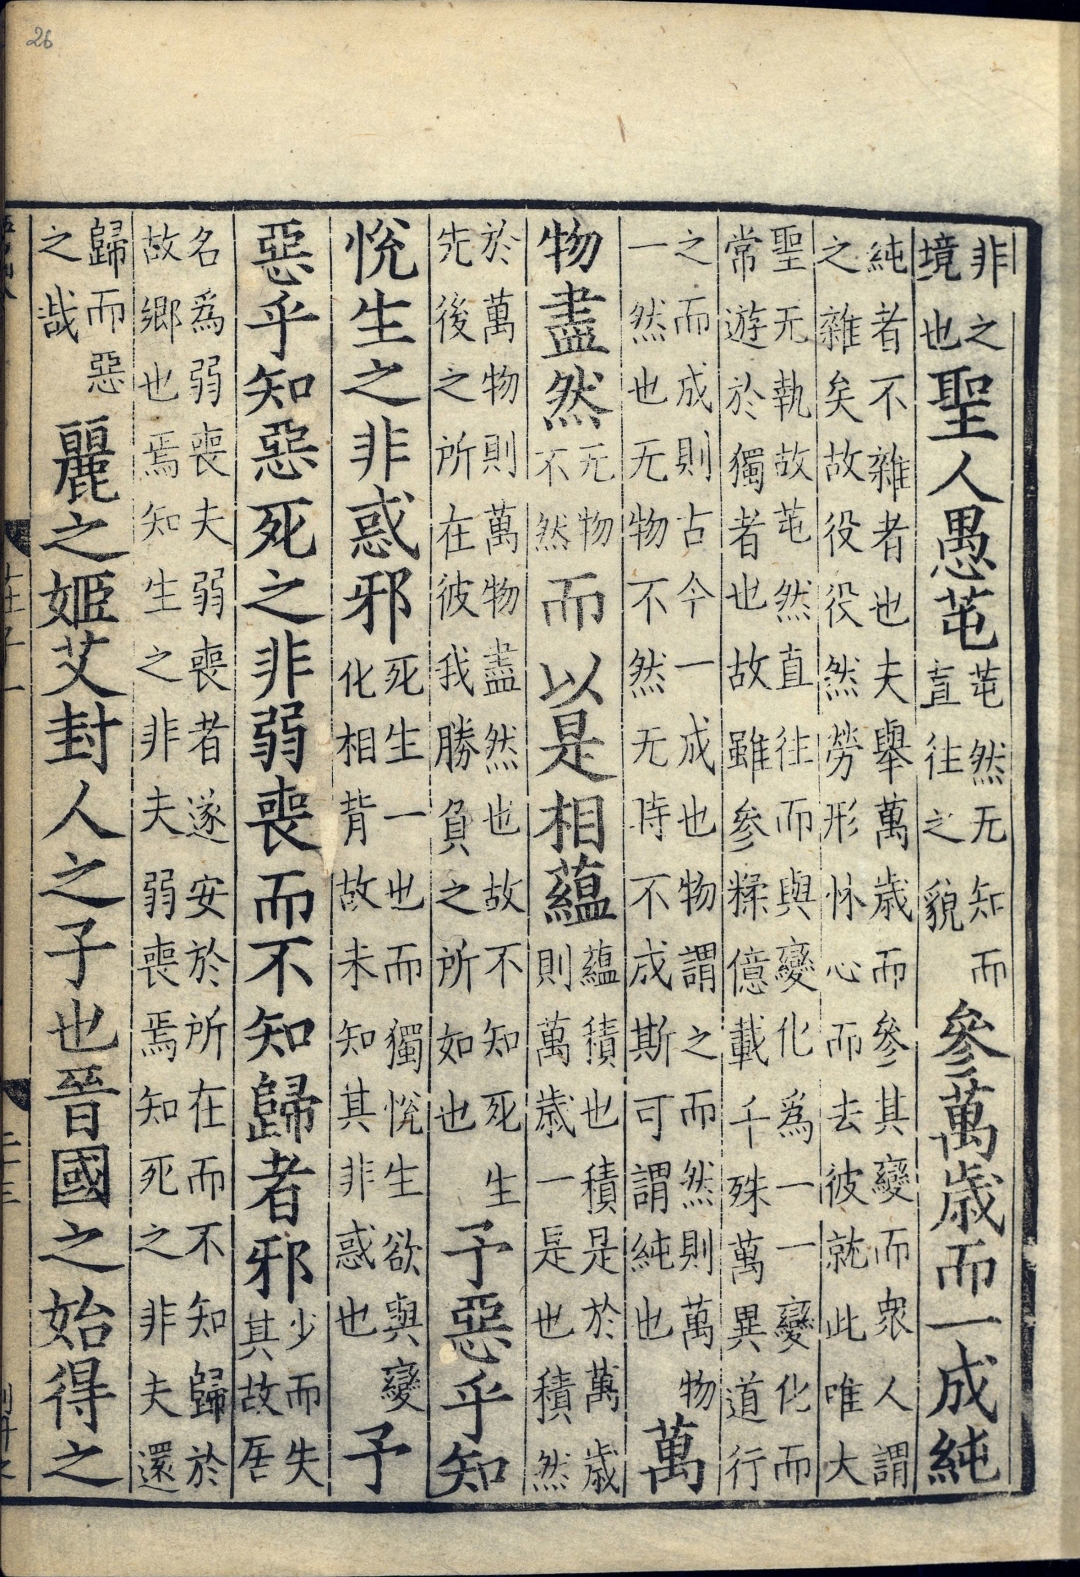 26
非之境也聖人愚芚芚然无知而直往之貌參萬歲而一成純
純者不雜者也夫舉萬歲而參其變而衆人謂之雜矣故役役然勞形怵心而去彼就此唯大
聖无執故芚然直往而與變化爲一一變化而常遊於獨者也故雖參糅億載千殊萬異道行
之而成則古今一成也物謂之而然則萬物一然也无物不然无時不成斯可謂純也萬
物盡然无物不然而以是相蘊蘊積也積是於萬歲則萬歲一是也積然
於萬物則萬物盡然也故不知死生先後之所在彼我勝負之所如也予惡乎知
悅生之非惑邪死生一也而獨悅生欲與變化相背故未知其非惑也予
惡乎知惡死之非弱喪而不知歸者邪少而失其故居
名爲弱喪夫弱喪者遂安於所在而不知歸於故鄉也焉知生之非夫弱喪焉知死之非夫還
歸而惡之哉麗之姬艾封人之子也晉國之始得之